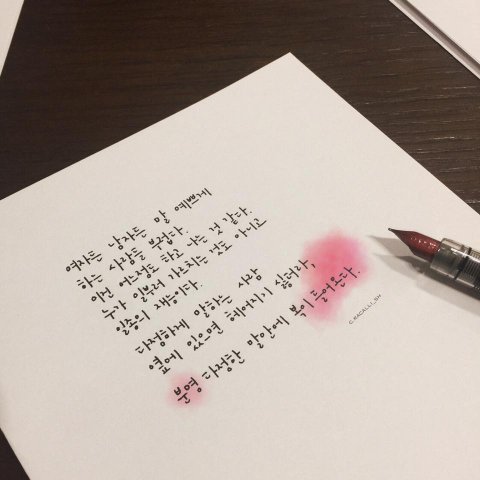 여자든 남자든 말 예쁘게
하는 사람들 부럽다.
이건 어느정도 타고 나는 것 같다.
누가 일부러 가르치는 것도 아니고
일종의 재능이다.
다정하게 말하는 사람
옆에 있으면 헤어지기 싫더라,
분명 다정한 말안에 복이 들어온다.
C KACALLI_SH